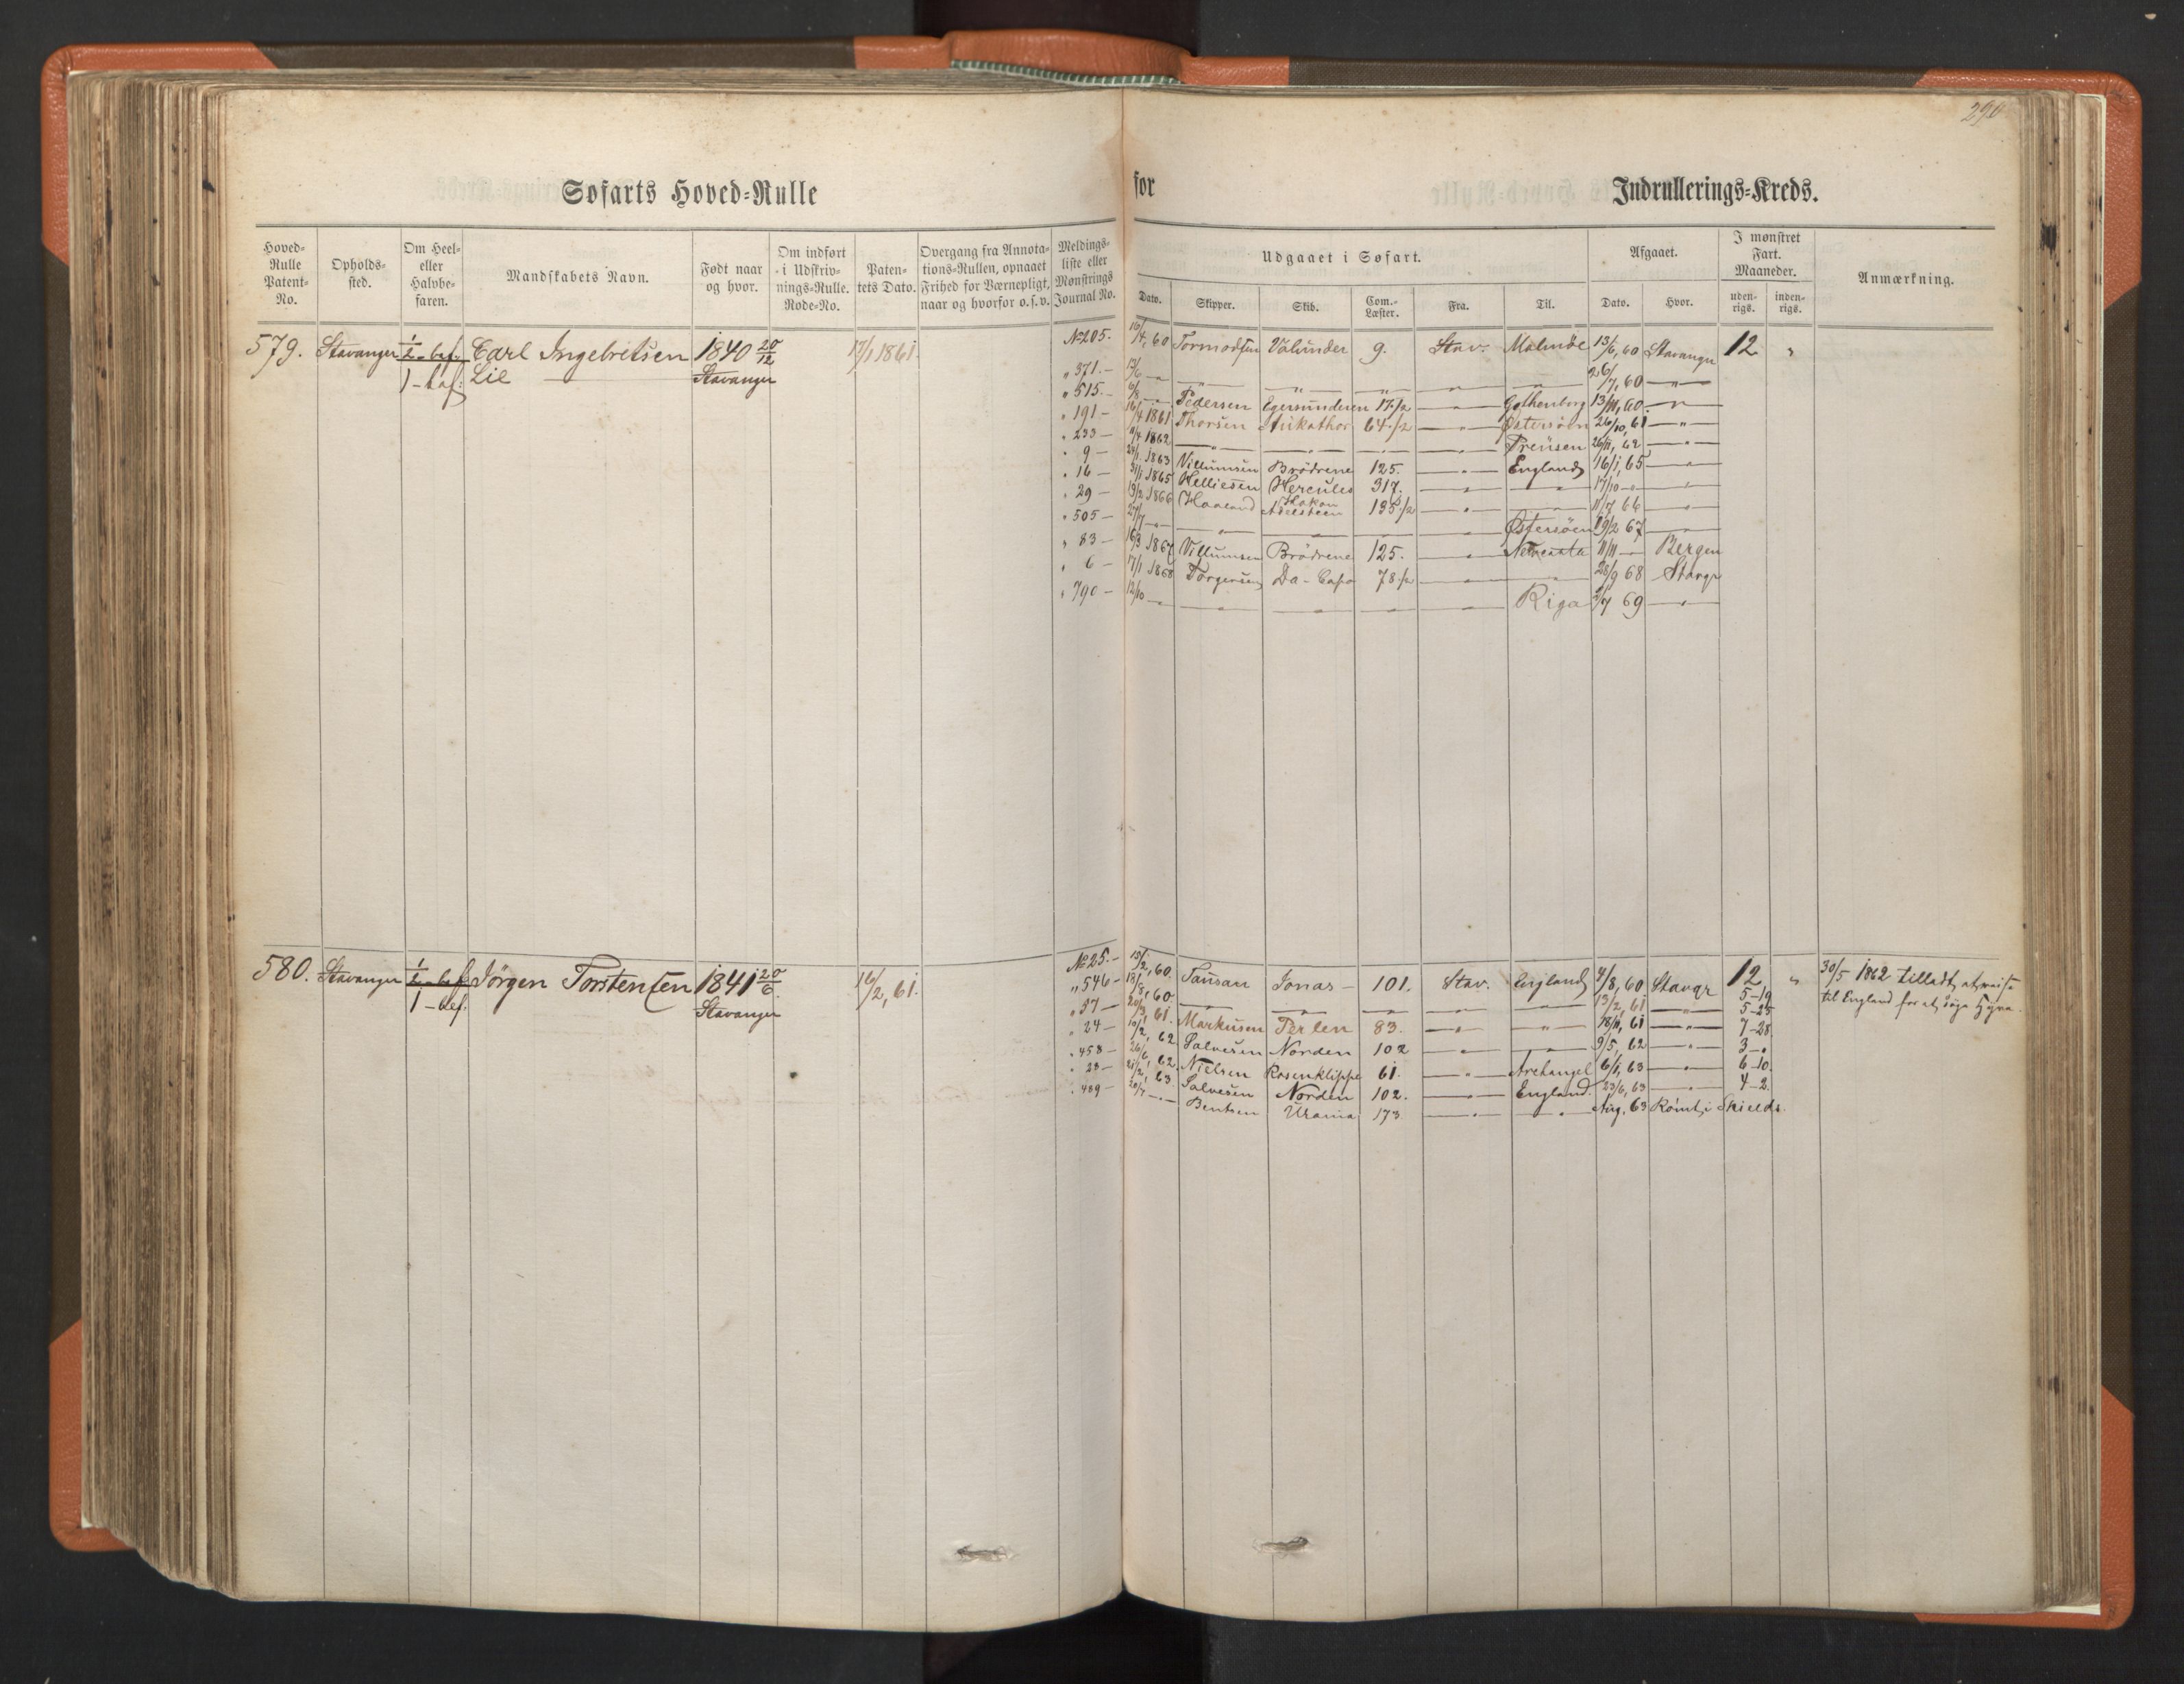 290
Søfarts Hoved=Rulle
for
Indrullerings=Kreds.
Hoved=
Rulle
Patent=
No.
Opholds=
sted.
Om Heel=
eller
Halvbe=
faren.
Mandskabets Navn.
Født naar
og hvor.
Om indført
i Udskriv=
nings=Rulle.
Rode=No.
Paten=
tets Dato.
Overgang fra Annota=
tions=Rullen, opnaaet
Frihed for Værnepligt,
naar og hvorfor o.s.v.
Meldings=
liste eller
Mønstrings
Journal No.
Udgaaet i Søfart.
Dato.
Skipper.
Skib.
Com.=
Læster.
Fra.
Til.
Afgaaet.
Dato.
Hvor.
I mønstret
Fart.
Maaneder.
uden=
rigs.
inden=
rigs.
Anmærkning.
579. Stavanger 1/2 - bef. Carl Ingebretsen 1840 20/12 17/1 1861. No 205. 16/4, 60 Tormodsen Valunder 9. Stav. Malmöe 13/6, 60 Stavanger 12 "
1 - bef. Lie Stavanger
" 371. - 17/6 - " - " - " - " - " - " 26/7, 60 - " -
" 515. - 6/8 - " - Pedersen Egersunderen 17 1/2 - " - Gothenborg 13/11, 60. - " -
" 191 - 16/4 1861 Thorsen Aukathor 64 1/2 - " - Østersøen 26/10, 61 - " -
" 233 - 9/4 1862 - " - " - " - " - Preusen 26/11, 62 - " -
" 9 - 24/1 1863 Villumsen Brödrene 125. - " - England 16/1, 65 - " -
" 16 - 31/1 1865 Helliesen Hercules 317. - " - " - 17/10 - " - " -
" 29 - 13/2 1866 Haaland Hakon Adelsteen 135 1/2 - " - " - 11/7 66 - " -
" 505 - 27/7 - " - " - " - " - " - Østersøen 19/2 67 - " -
" 83 - 16/3 1867 Villumsen Brödrene 125. - " - 11/11 - " - Bergen
" 6 - 17/1 1868 Torgersen Da-Capo 78 1/2 - " - " - 28/9 68 Stavgr
" 790 - 12/10 - " - " - " - " - " - Riga 2/7 69 - " -
580. Stavanger 1/2 - bef. Jörgen Torstensen 1841 20/6. 16/2, 61. No 25. - 15/2, 60. Jonas - 101. Stav. England 4/8, 60 Stavgr 12 " 30/5 1862 tilladt, at reise
1 - bef. Stavanger
til England for at söge Hyre.
" 546 - 18/8, 60 - " - " - " - " - " 13/2, 61 - " - 5-19
" 37 - 20/3, 61. Markusen Perlen 83. - " - " - 18/11, 61 - " - 5-25
" 24 - 10/2, 62 Salvesen Norden 102 - " - " - 9/5, 62 - " - 7-28
" 458 - 26/6, 62. Nielsen Rosenklippe 61. - " - Archangel 6/1, 63 - " - 3 - "
" 28 - 21/2, 63. Salvesen Norden 102. - " - England 23/6, 63 - " - 6-10
" 489 - 20/7 - " - Bentsen Urania 173 - " - " - Aug. 63 Römt, i Shields. 4-2